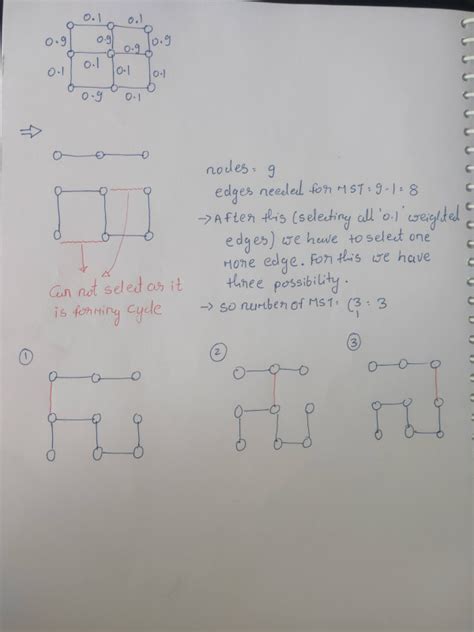 0.1 0.1
0.9 0.9 0.9
0.1 0.1 0.1 0.1
0.9 0.1
⇒
nodes = 9
edges needed for MST = 9-1 = 8
→ After this (selecting all '0.1' weighted
edges) we have to select one
more edge. for this we have
three possibility.
→ so number of MST = C 3 1 = 3
Can not select as it
is forming cycle
1
2
3